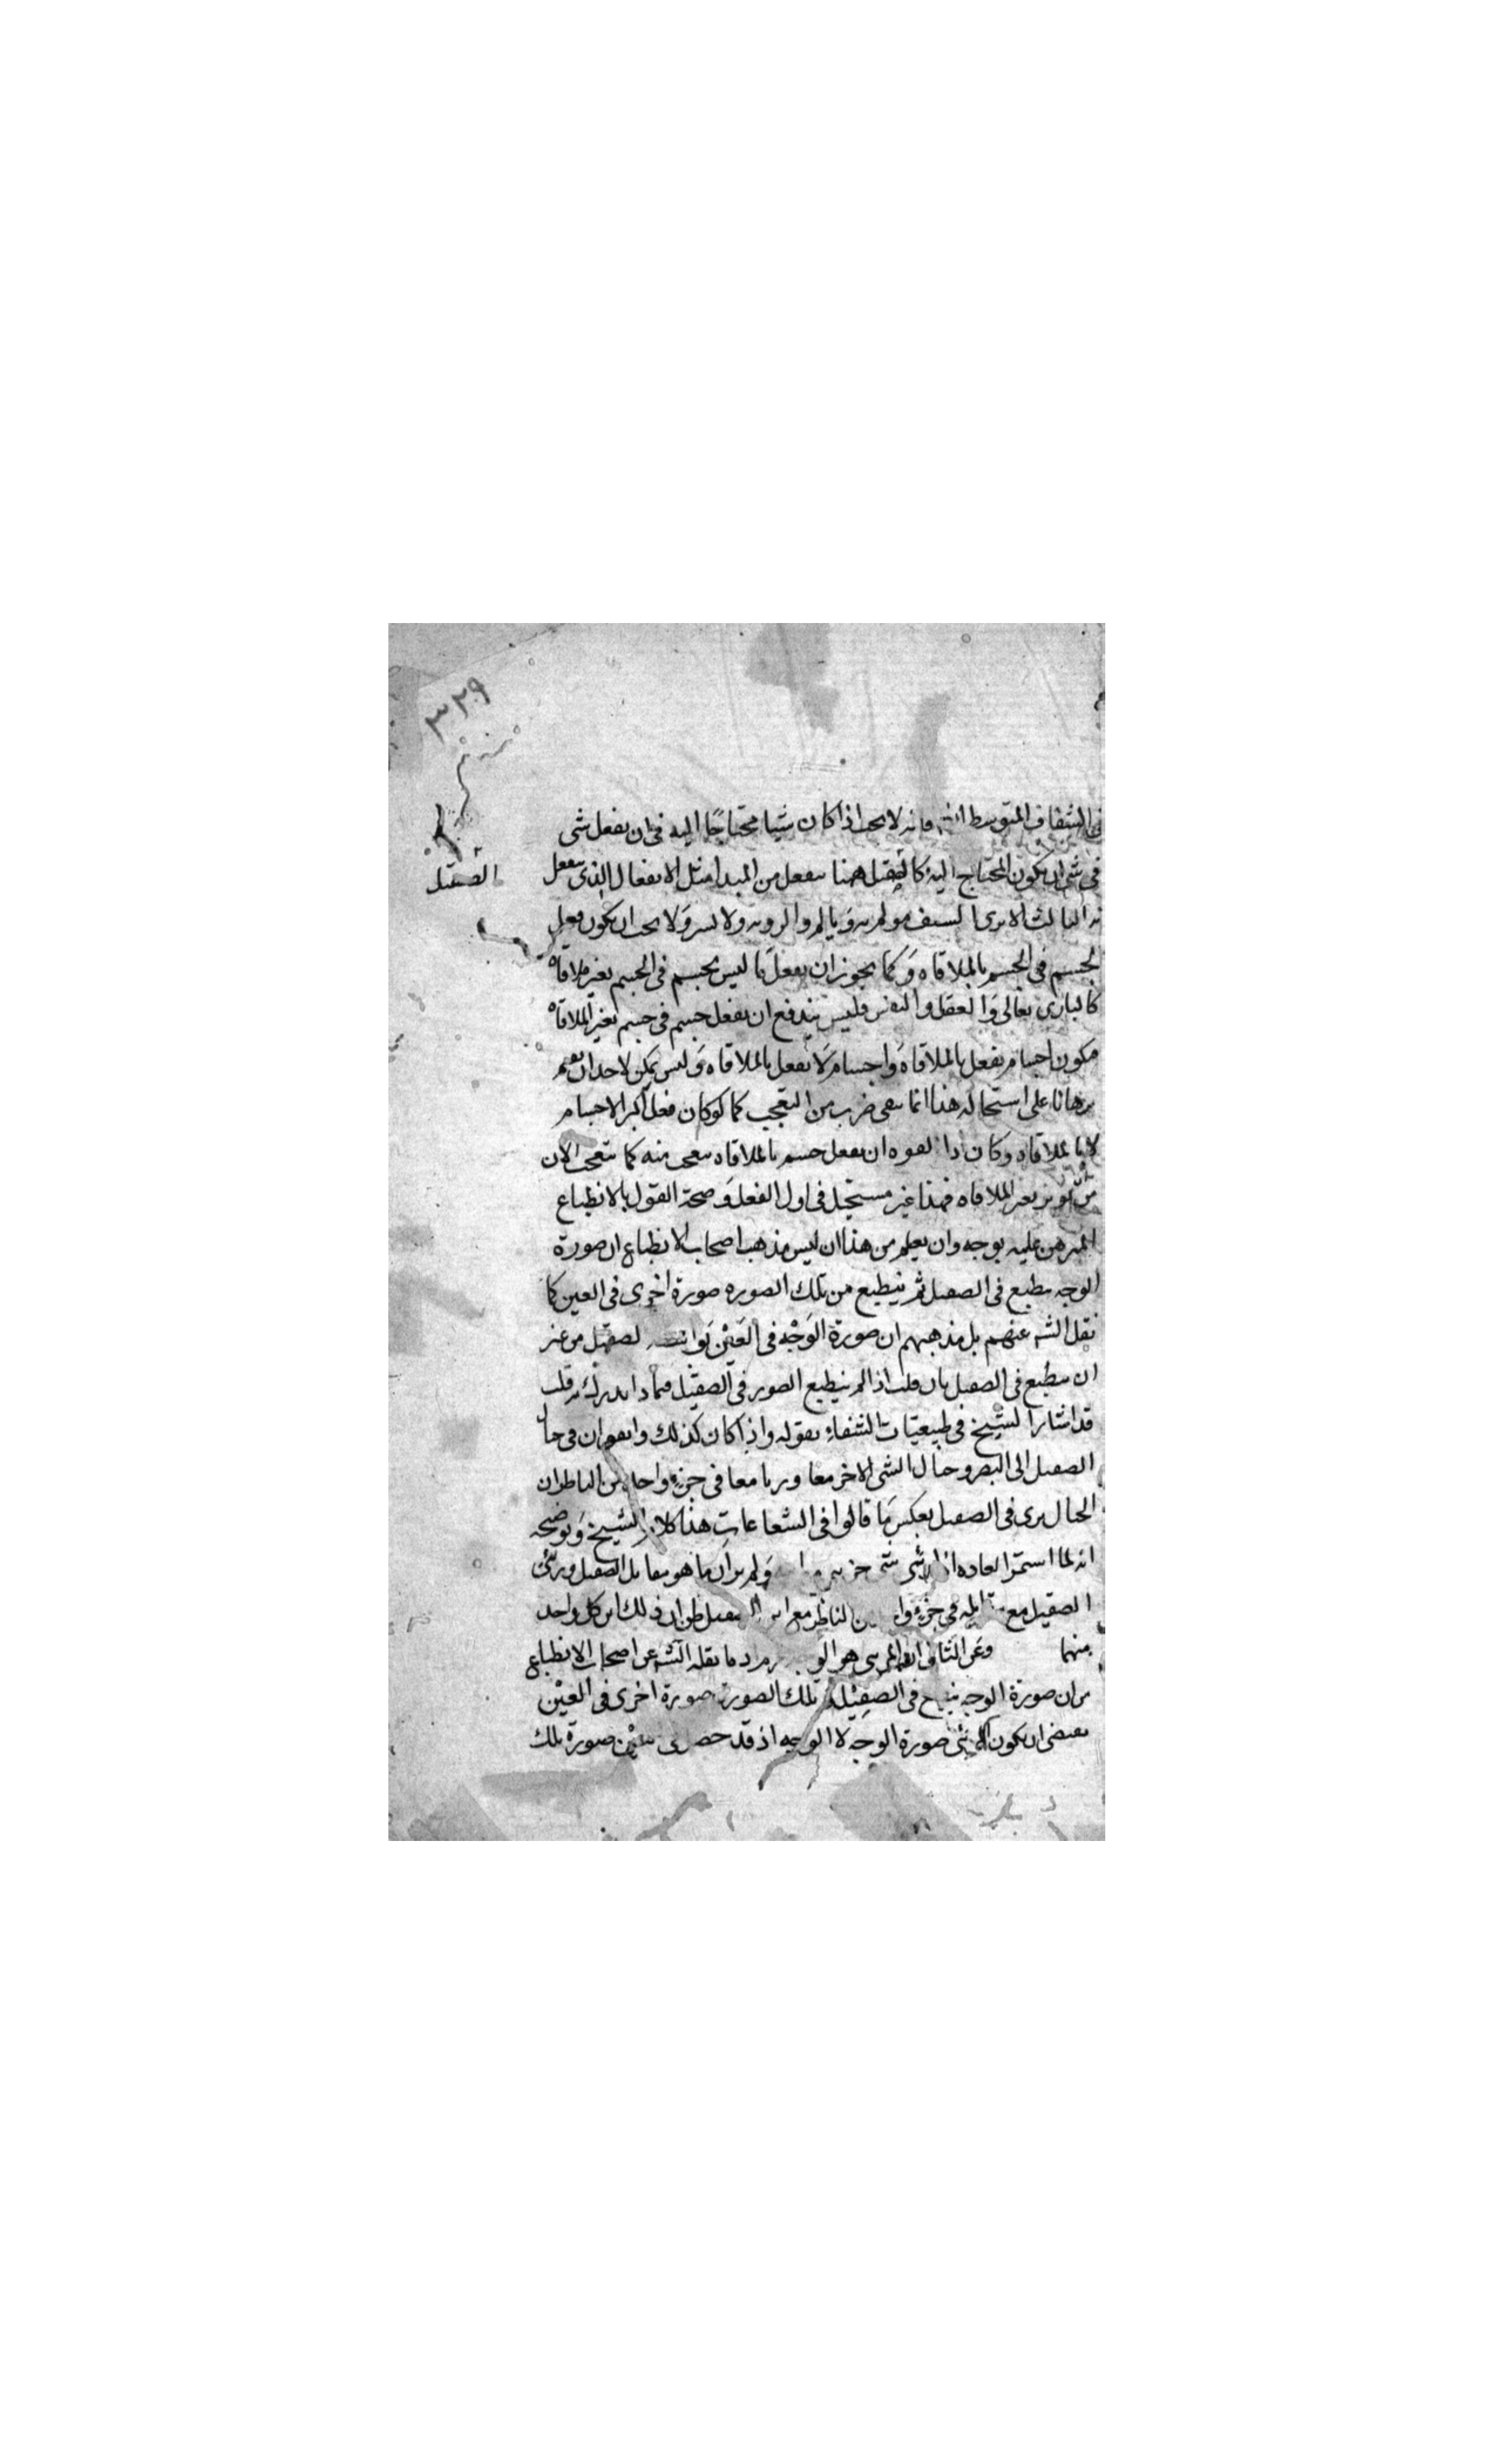 ٣٢٩
في الشفاف المتوسط فانه لا يجب اذا كان شيا محتاجًا اليه في ان يفعل شي
في شي ان يكون المحتاج اليه كالصقيل هنا ينفعل من المبدا مثل الانفعال الذى ينفعل
الصقيل
به الثالث الا ترى السيف مولم به ويالم ولا يجب ان يكون فعل
الجسم في الجسم بالملاقاه وَكما يجوز ان يفعل مَا ليس بجسم في الجسم بغير ملاقاه
كالبارى تعالى وَالعقل والنفس فليس يندفع ان يفعل جسم في جسم بغير الملاقاه
فيكون اجسام يفعل بالملاقاه وَاجسام لا يفعل بالملاقاه وَليس يمكن لاحد ان يقيم
برهانا على استحاله هذا انما يبقى ضرب من التعجب كما لو كان فعل اكثر الاجسام
لا بالملاقاه وكان اذا ان يفعل جسم بالملاقاه يتعجب منه كما يتعجب الان
من بغير الملاقاه فهذا غير مستحيل في اول الفعل وَصحة القول بالانطباع
المبرهن عليه يوجبه وان يعلم من هذا ان ليس مذهب اصحاب الانطباع ان صورة
الوجه ينطبع في الصقيل ثم ينطبع من تلك الصوره صورة اخرى في العين كما
نقل الشه عنهم بل مذهبهم ان صورة الوَجْه في العَيْن الصقيل من غير
ان ينطبع في الصقيل فان قلت اذا لم ينطبع الصور في الصقيل فماذا يدرك به قلت
قد اشار الشيخ في طبيعيات الشفاء بقوله واذا كان كذلك واتفق ان في حال
الصقيل الى البصر وحال الشي الاخر معا وريا معا في جزء واحد من الناظر ان
الحال يرى في الصقيل بعكس مَا قالوا في الشعاعات هذا كلام الشيخ وَتوضيحه
انه لما استمر العاده وَلم ير ان ما هو مقابل الصقيل ورئى
الصقيل مع مقابله في جزء الناظر مع ان الصقيل ظن ان ذلك ان كل واحد
منهما وعن الثاني المرئى هو يرد ما نقله الشه عن اصحاب الانطباع
من ان صورة الوجه في الصقيل تلك الصورة صورة اخرى في العيْن
يقتضي ان يكون المرئى صورة الوجه لا الوجه اذ قد حصل صورة تلك